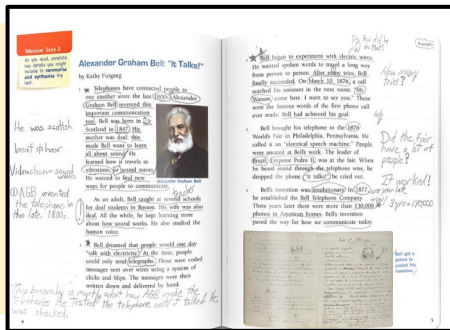 Mentor Text 2
As you read, annotate
key details you might
include to summarize
and synthesize the
text.
Alexander Graham Bell: "It Talks!"
by Kathy Furgang
1 Telephones have connected people to
one another since the late 1800s. Alexander
Graham Bell invented this
important communication
tool. Bell was born in
Scotland in 1847. His
mother was deaf; this
made Bell want to learn
all about sound. He
learned how it travels as
vibrations, or sound waves.
He wanted to find new
ways for people to communicate.
Alexander Graham Bell
teacher
As an adult, Bell taught at several schools
for deaf students in Boston. His wife was also
deaf. All the while, he kept learning more
about how sound works. He also studied the
human voice.
Bell dreamed that people would one day
"talk with electricity." At the time, people
could only send telegraphs. These were coded
messages sent over wires using a system of
clicks and blips. The messages were then
written down and delivered by hand.
He was scottish
Vibrations = sound
AGB invented
the telephone in
the late 1800s.
This biography is mostly about how AGB made the
telephone. He tested the telephone until it talked. He
was shocked.
4
how did he
do that?
Biography
Bell began to experiment with electric wires.
He wanted spoken words to travel a long way
from person to person. After many tries, Bell
finally succeeded. On March 10, 1876, he
reached his assistant in the next room: "Mr.
Watson, come here. I want to see you." These
were the famous words of the first phone call
ever made. Bell had achieved his goal.
How many
tries?
Bell brought his telephone to the 1876
World's Fair in Philadelphia, Pennsylvania. He
called it an "electrical speech machine." People
were amazed at Bell's work. The leader of
Brazil, Emperor Pedro II, was at the fair. When
he heard sound through the telephone wire, he
dropped the phone. "It talks!" he cried out.
Did the fair
have a lot of
people?
It worked!
Bell's invention was revolutionary. In 1877,
he established the Bell Telephone Company.
Three years later there were more than 130,000
phones in American homes. Bell's invention
paved the way for how we communicate today.
3 yrs = 130,000
Bell got a
patent to
protect his
invention.
5